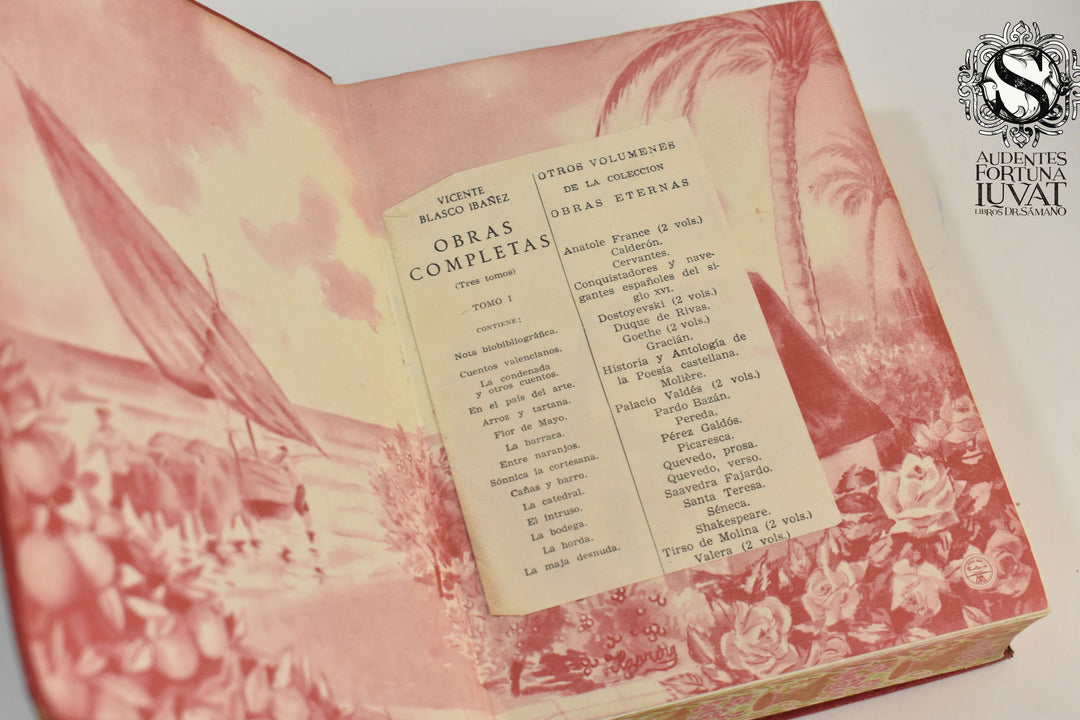 VICENTE
BLASCO IBAÑEZ
OBRAS
COMPLETAS
(Tres tomos)
TOMO I
CONTIENE:
Nota biobibliográfica.
Cuentos valencianos.
La condenada
y otros cuentos.
En el país del arte.
Arroz y tartana.
Flor de Mayo.
La barraca.
Entre naranjos.
Sónnica la cortesana.
Cañas y barro.
La catedral.
El intruso.
La bodega.
La horda.
La maja desnuda.
OTROS VOLUMENES
DE LA COLECCION
OBRAS ETERNAS
Anatole France (2 vols.)
Calderón.
Cervantes.
Conquistadores y nave-
gantes españoles del si-
glo XVI.
Dostoyevski (2 vols.)
Duque de Rivas.
Goethe (2 vols.)
Gracián.
Historia y Antología de
la Poesía castellana.
Molière.
Palacio Valdés (2 vols.)
Pardo Bazán.
Pereda.
Pérez Galdós.
Picaresca.
Quevedo, prosa.
Quevedo, verso.
Saavedra Fajardo.
Santa Teresa.
Séneca.
Shakespeare.
Tirso de Molina (2 vols.)
Valera (2 vols.)
S
AUDENTES
FORTUNA
IUVAT
LIBROS DR. SÁMANO